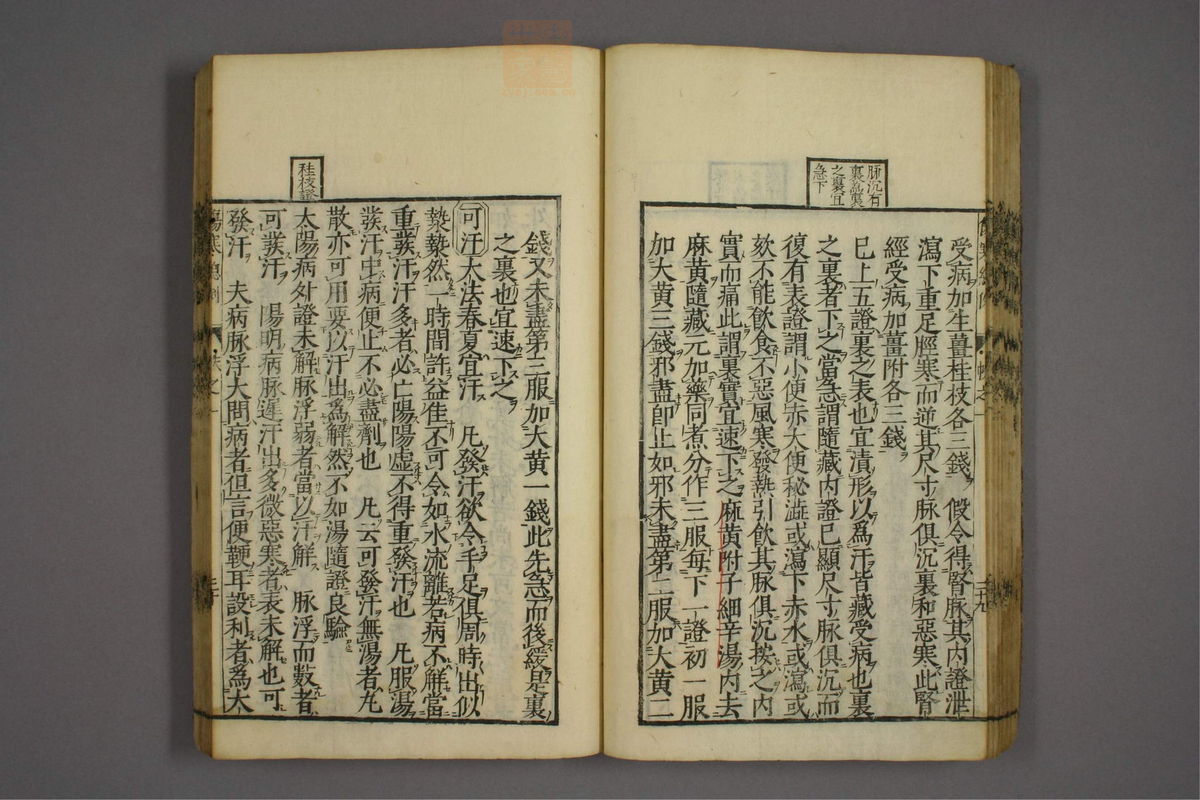 脉沉有
裏急裏
之裏宜
急下
受病加生薑桂枝各三錢　假令得腎脉其內證泄
瀉下重足脛寒而逆其尺寸脉俱沉裏和惡寒此腎
經受病加薑附各三錢
已上五證裏之表也宜漬形以爲汗皆藏受病也裏
之裏者下之當急謂隨藏內證已顯尺寸脉俱沉而
復有表證謂小便赤大便秘澁或瀉下赤水或瀉或
欬不能飲食不惡風寒發熱引飲其脉俱沉按之內
實而痛此謂裏實宜速下之麻黃附子細辛湯內去
麻黃隨藏元加藥同煮分作三服每下一證初一服
加大黃三錢邪盡卽止如邪未盡第二服加大黃二
二十九
桂枝證
錢又未盡第三服加大黃一錢此先急而後緩是裏
之裏也宜速下之
可汗大法春夏宜汗　凡發汗欲令手足俱周時出似
漐漐然一時間許益佳不可令如水流離若病不解當
重發汗汗多者必亡陽陽虛不得重發汗也　凡服湯
發汗中病便止不必盡劑也　凡云可發汗無湯者丸
散亦可用要以汗出爲解然不如湯隨證良驗
太陽病外證未解脉浮弱者當以汗解　脉浮而數者
可發汗　陽明病脉遲汗出多微惡寒者表未解也可
發汗　夫病脉浮大問病者但言便鞕耳設利者爲大